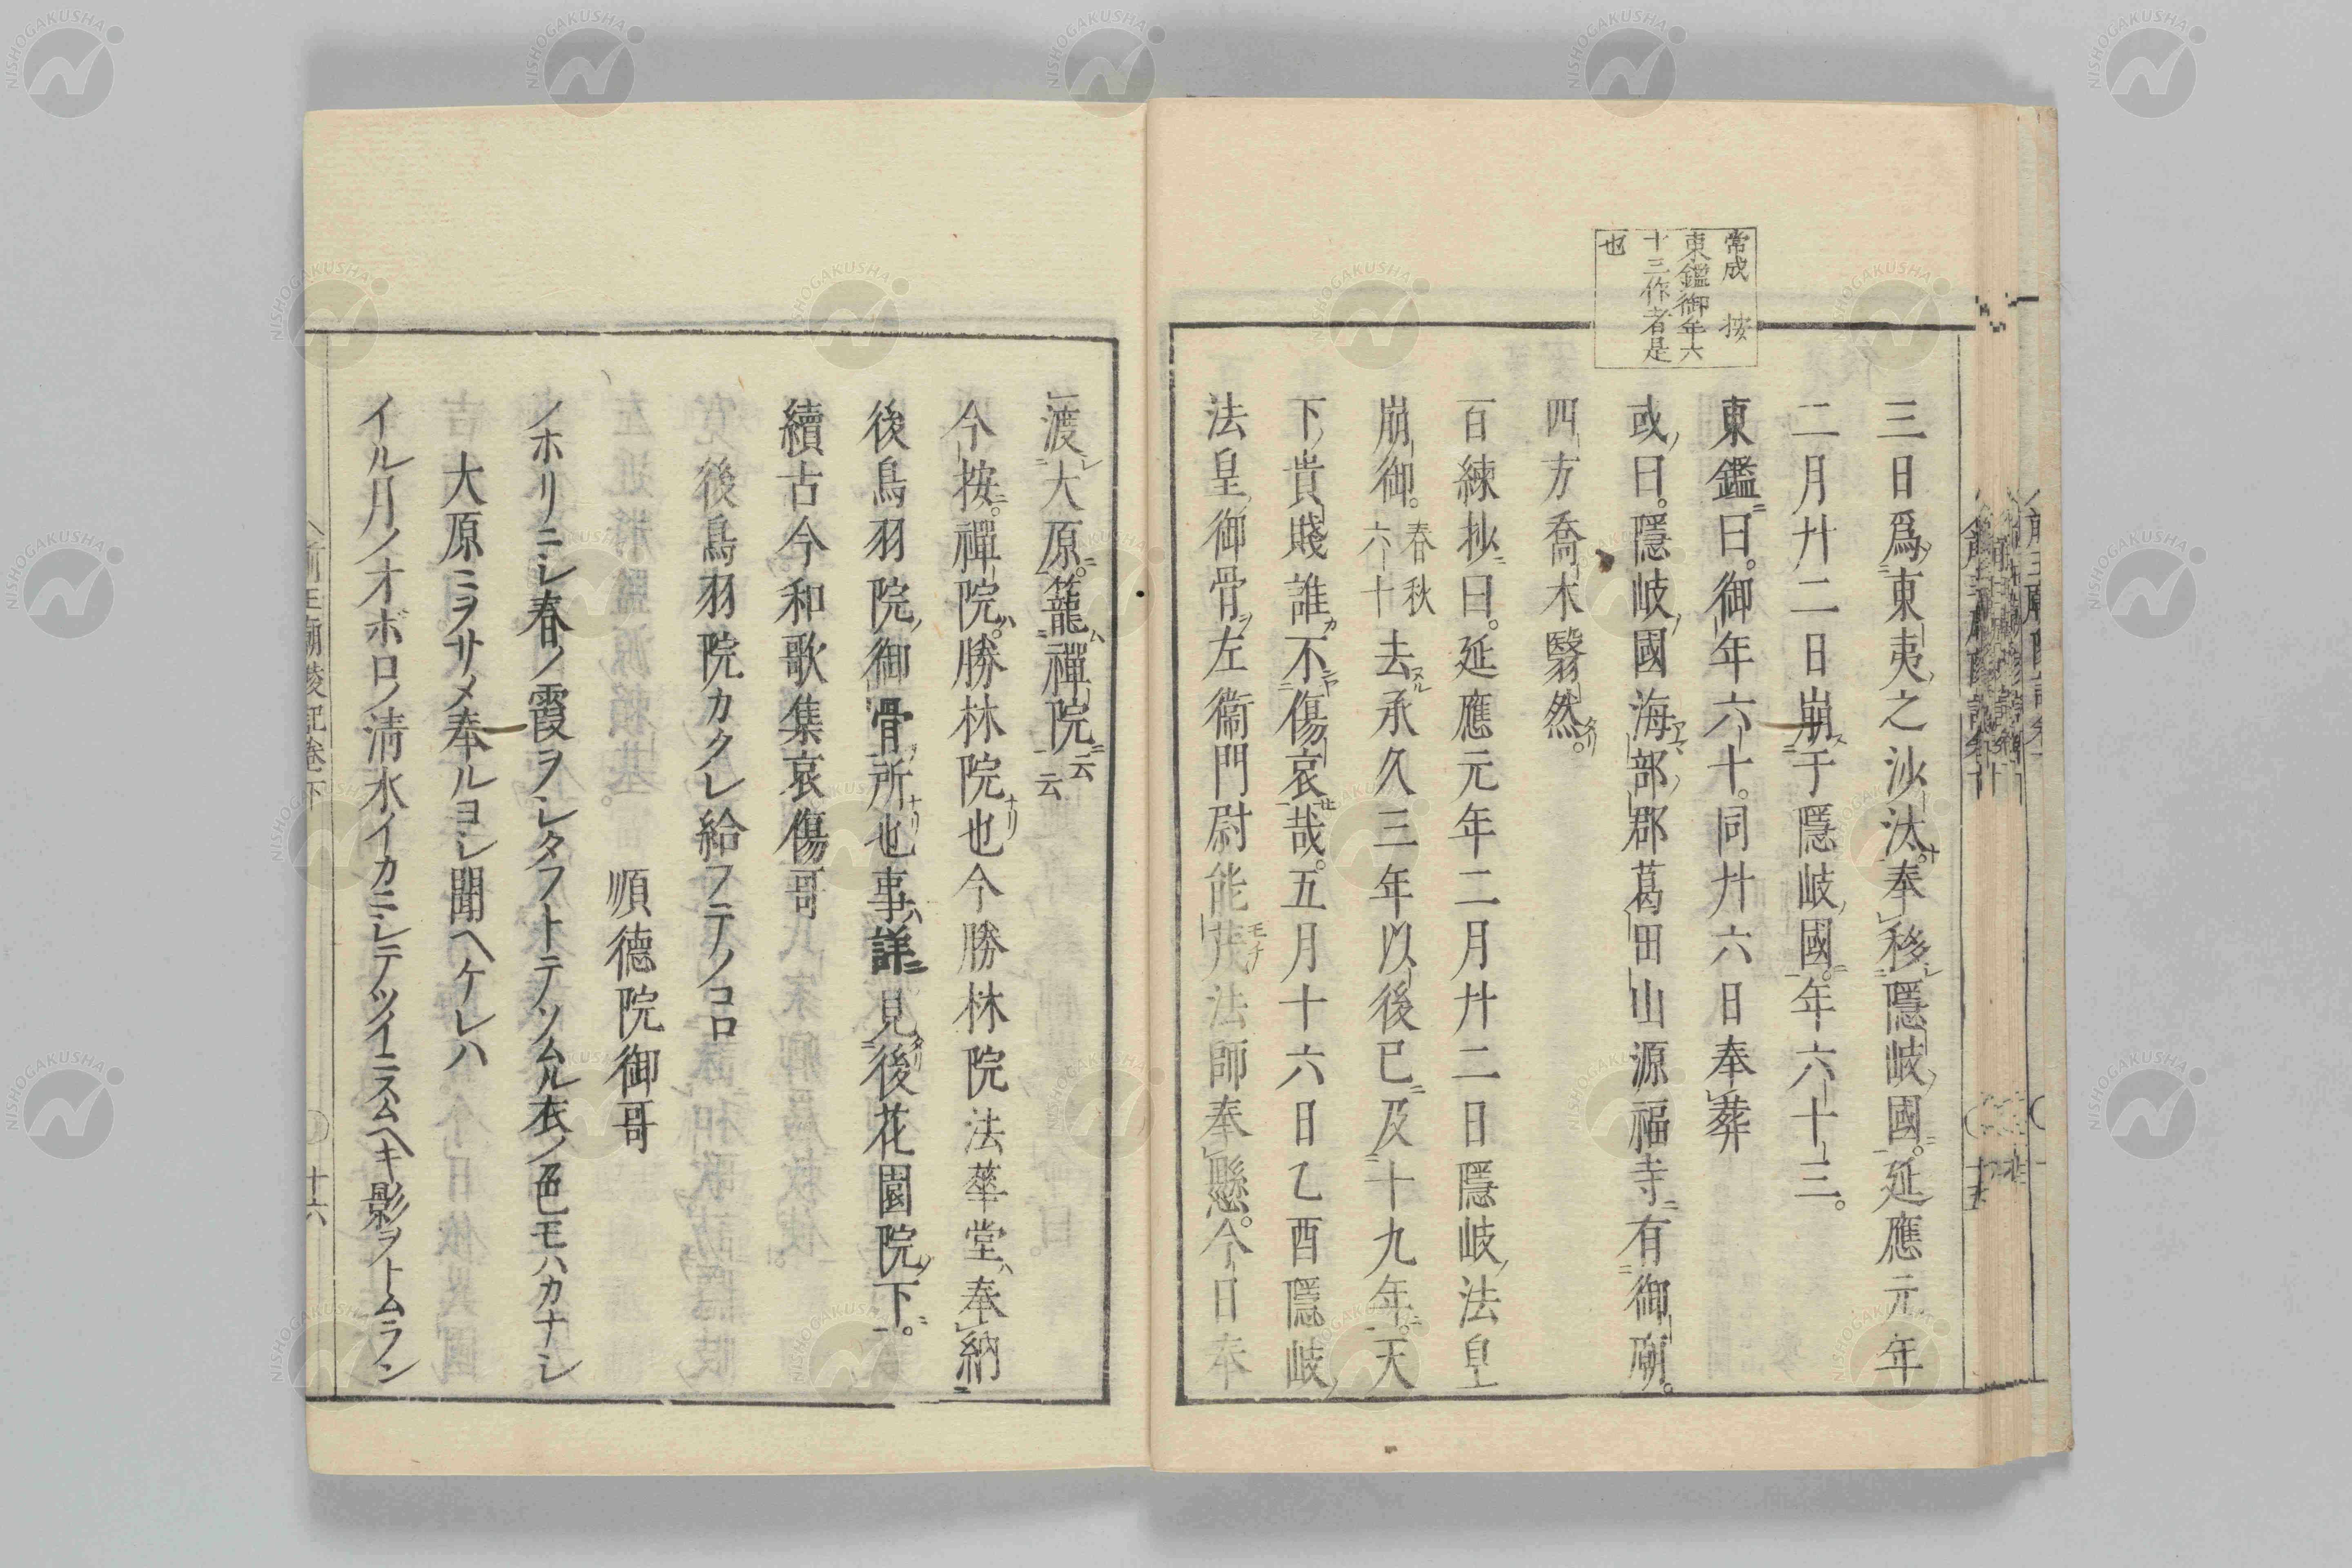 常成　按
東鑑御年六
十三作者是
也
三日爲東夷之沙汰奉移隱岐國。延應元年
二月廿二日崩于隱岐國。年六十三。
東鑑曰。御年六十。同廿六日奉葬
或曰。隱岐國海部郡葛田山源福寺有御廟。
四方喬木翳然。
百練抄曰。延應元年二月廿二日隱岐法皇
崩御。春秋六十去承久三年以後已及十九年。天
下貴賤誰不傷哀哉。五月十六日乙酉隱岐
法皇御骨左衞門尉能茂法師奉懸。今日奉
渡大原。籠禪院云云
今按。禪院。勝林院也今勝林院法華堂奉納
後鳥羽院御骨所也事詳見後花園院下。
續古今和歌集哀傷哥
後鳥羽院カクレ給フテノコロ
順德院御哥
ノホリニシ春ノ霞ヲシタフトテソムル衣ノ色モハカナシ
大原ニヲサメ奉ルヨシ聞ヘケレハ
イル月ノオボロノ清水イカニシテツイニスムヘキ影ヲトムラン
前王廟陵記卷下
十六
NISHOGAKUSHA